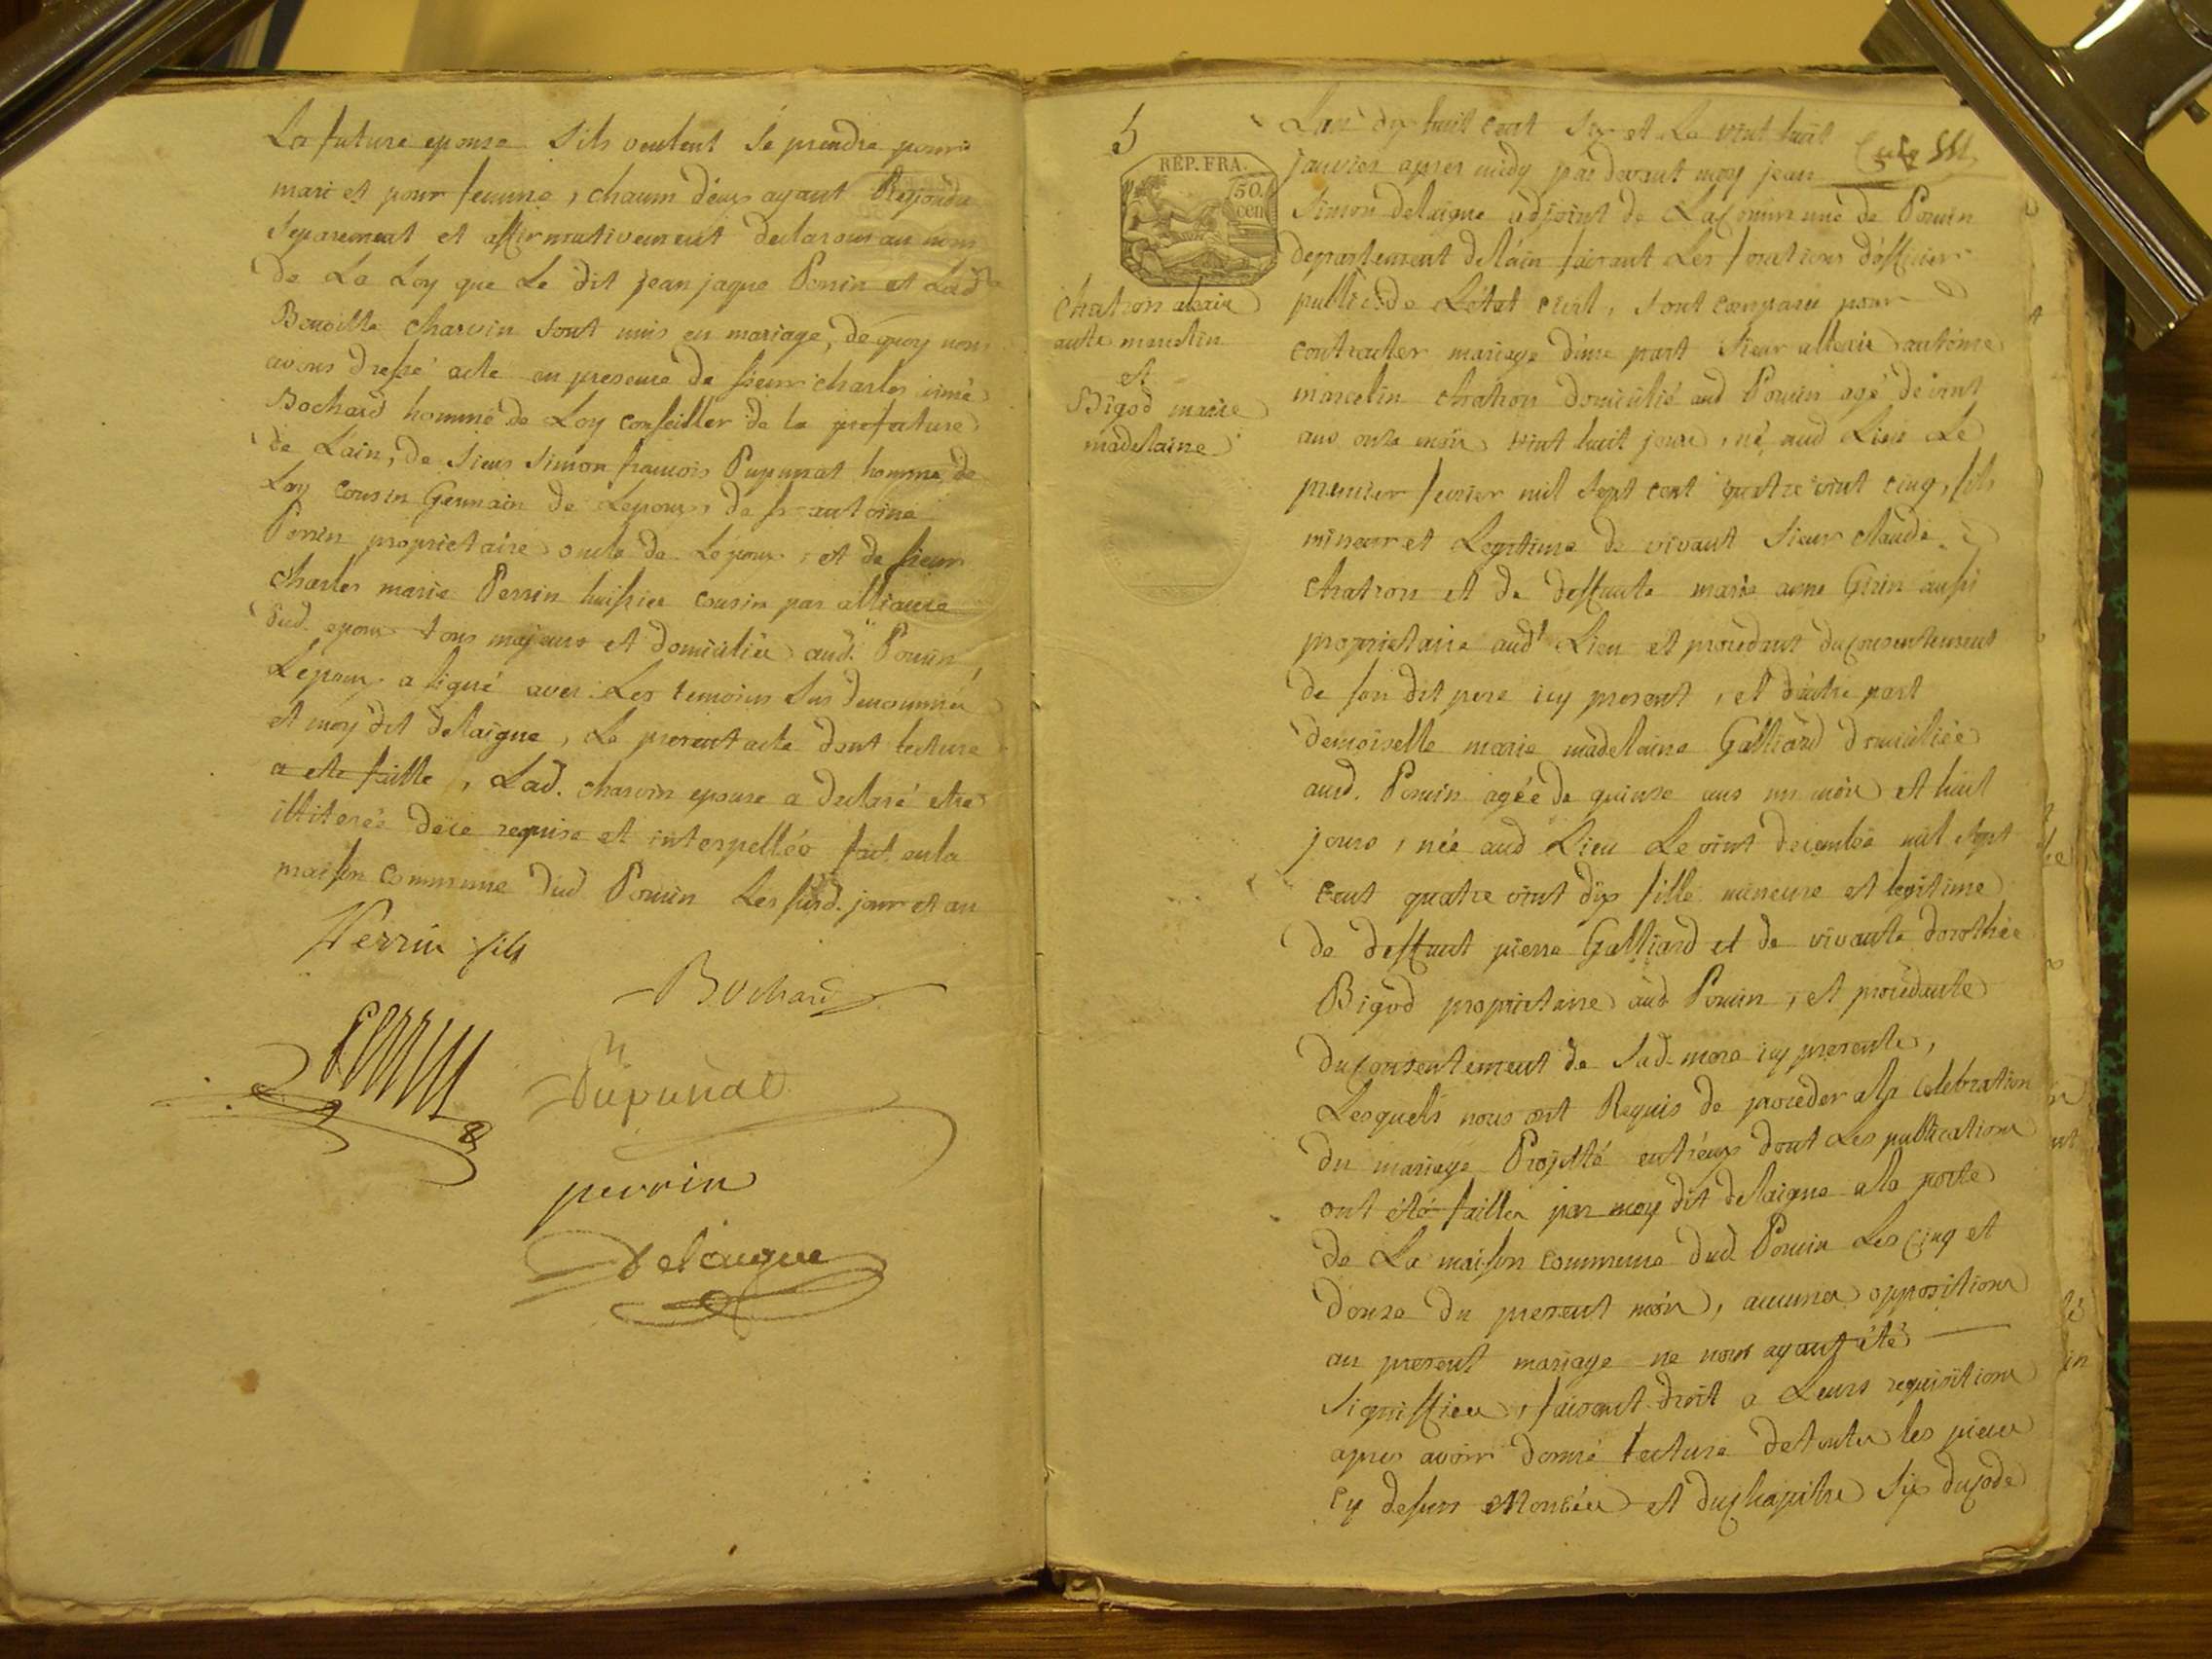 La future epouse s'ils veulent se prendre pour
mari et pour femme, chacun d'eux ayant Repondu
separement et affirmativement declarons au nom
de La Loy que Le dit jean jaque Perrin et Lad
Benoitte charvin sont unis en mariage, de quoy nous
avons dressé acte en presence de sieur charles aimé
Bochard homme de Loy conseiller de la prefecture
de Lain, de sieur simon francois Pupunat homme de
Loy cousin Germain de Lepoux, de sr antoine
Perrin proprietaire oncle de Lepoux, et de sieur
charles marie Perrin huissier cousin par alliance
dud. epoux tous majeurs et domiciliés aud. Poncin,
Lepoux a signé avec Les temoins sus denommés
et moy dit delaigue, Le present acte dont lecture
a ete faitte, Lad. charvin epouse a declaré etre
illiterée de ce requise et interpellée fait en la
maison commune dud Poncin Les susd. jour et an
Perrin fils
Bochard
Perrin
Pupunat
perrin
Delaigue
5
REP. FRA.
50. cen
chatron alexis
antne marcelin
et
Bigod marie
madelaine
L'an dix huit cent six et Le vint huit
janvier apres midy par devant moy jean
simon delaigue adjoint de La Commune de Poncin
departement de l'ain faisant Les fonctions d'officier
public de L'etat civil, sont comparu pour
contracter mariage d'une part sieur allexis antoine
marcelin chatron domicilié aud Poncin agé de vint
ans onze mois vint huit jours, né aud Lieu Le
premier fevrier mil sept cent quatre vint cinq, fils
mineur et Legitime de vivant sieur claude
chatron et de deffunte marie anne Girin aussi
proprietaire audt Lieu et procedant du Consentement
de son dit pere icy present, et d'autre part
demoiselle marie madelaine Galliard domiciliée
aud. Poncin agée de quinze ans un mois et huit
jours, née aud Lieu Le vint decembre mil sept
cent quatre vint dix fille mineure et legitime
de deffunt pierre Galliard et de vivante dorothée
Bigod proprietaire aud Poncin, et procedante
du Consentement de sad. mere icy presente,
Lesquels nous ont Requis de proceder a la celebration
du mariage Projetté entr'eux dont Les publications
ont été faittes par moy dit delaigue a la porte
de La maison commune dud Poncin Les cinq et
douze du present mois, aucunes oppositions
au present mariage ne nous ayant été
signiffiées, faisant droit a Leurs requisitions
apres avoir donné lecture de toutes les pieces
cy dessus enoncées et du chapitre six du Code